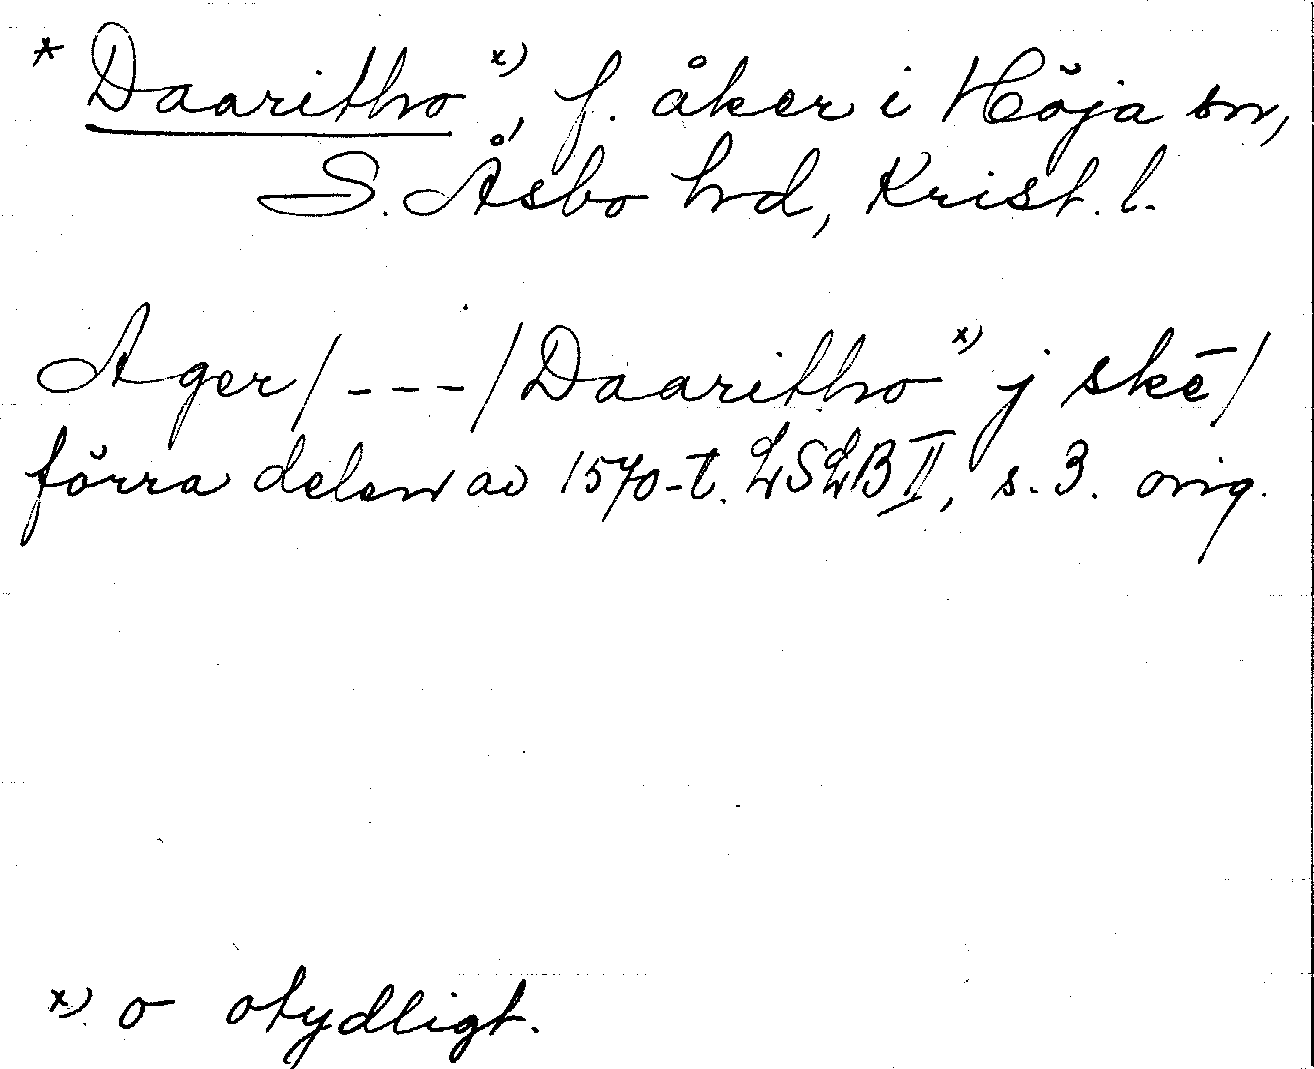 * Daaritho x), f. åker i Höja sn,
S. Åsbo hd, Krist. l.
Ager/---/Daaritho x) j skē/
förra delen av 1570-t. LSLB II, s. 3. orig.
x) o otydligt.